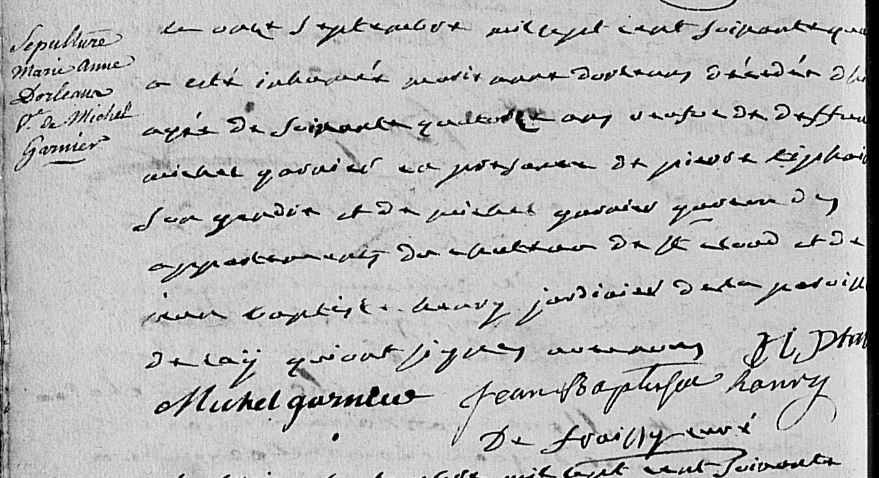 Sepulture
Marie Anne
Dorleans
Ve de Michel
Garnier
Le onze Septembre mil sept cent soixante
a esté inhumée marie anne dorleans décédée
agée de soixante quatorze ans veufve de deffun
michel garnier en presence de pierre
son gendre et de michel garnier garcon des
appartements du chateau de St cloud et de
jean baptiste henry jardinier de la paroiss
de qui ont signes avec nous
Michel garnier Jean Baptiste hanry
De curé
mil sept cent soixante